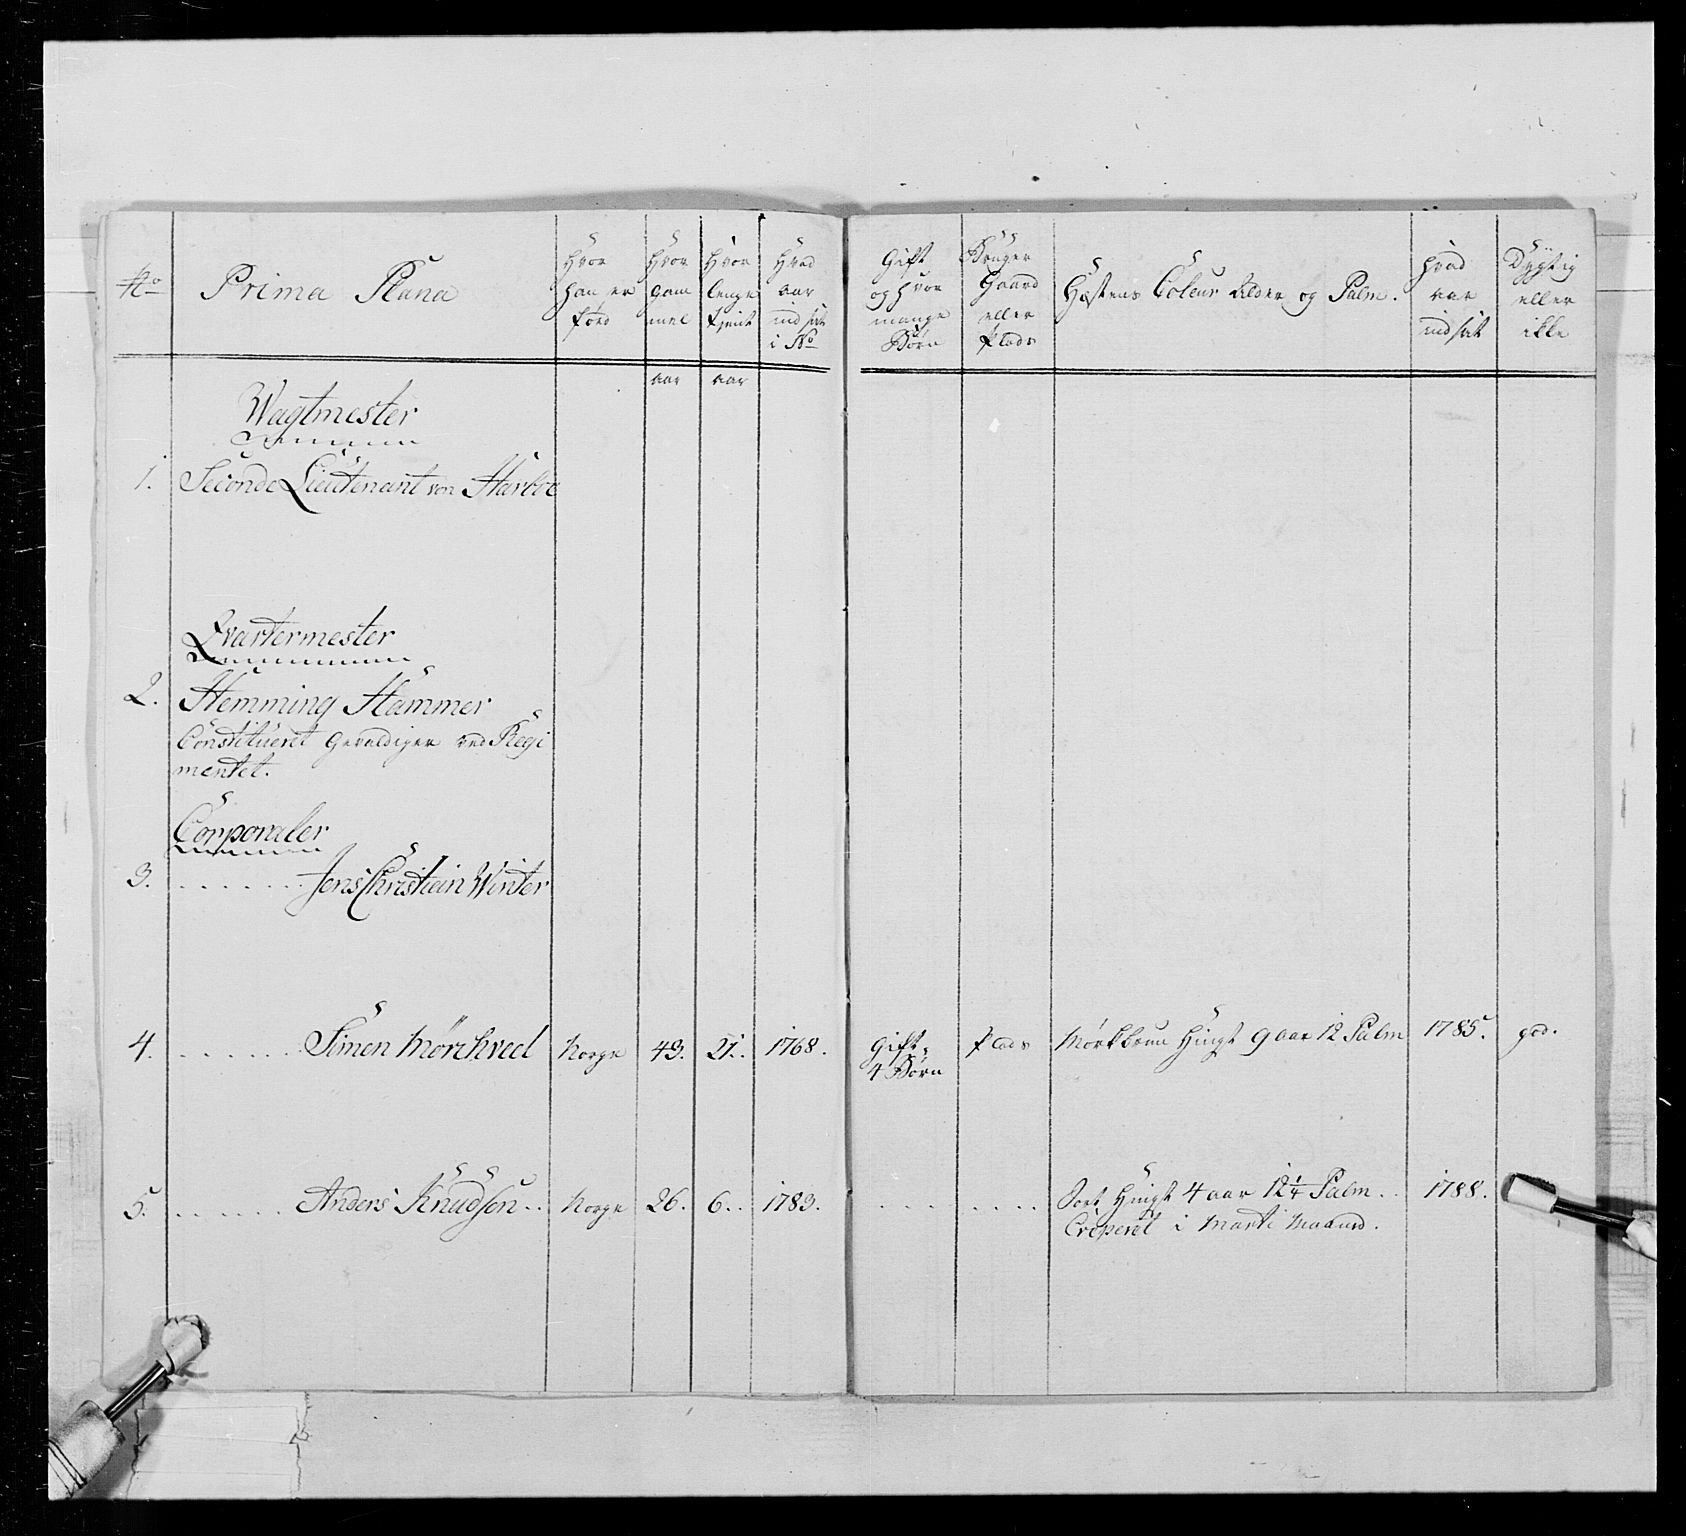 No
Prima Plana
Hvor han er fød
Hvor gam mel
Hvor lenge tjent
Hvad aar ind sat i No
Gift og hvor mange Børn
Bruger Gaard eller Plads
Hæstens Coleur Alder og Palm.
hvad aar indsat
Dygtig eller ikke
aar aar
Wagtmester
1. Seconde Lieutenant von Harboe
Qvartermester
2. Hemming Hammer
Constitueret Gevaldiger ved Regi
mentet.
Corporaler
3. . . . . . . . Jens Christian Winter
4. . . . . . . . Simen Mörchved Norge 43. 21. 1768. Gift, Plads Mørkbrun Hingst 9 aar 12 Palm 1785. god.
4 Børn
5. . . . . . . Anders Knudsen . . Norge 26. 6. . 1783. . . . . . . . . Sort Hingst 4 aar 12 1/4 Palm . . 1788.
Creperet i Marti Maaned.